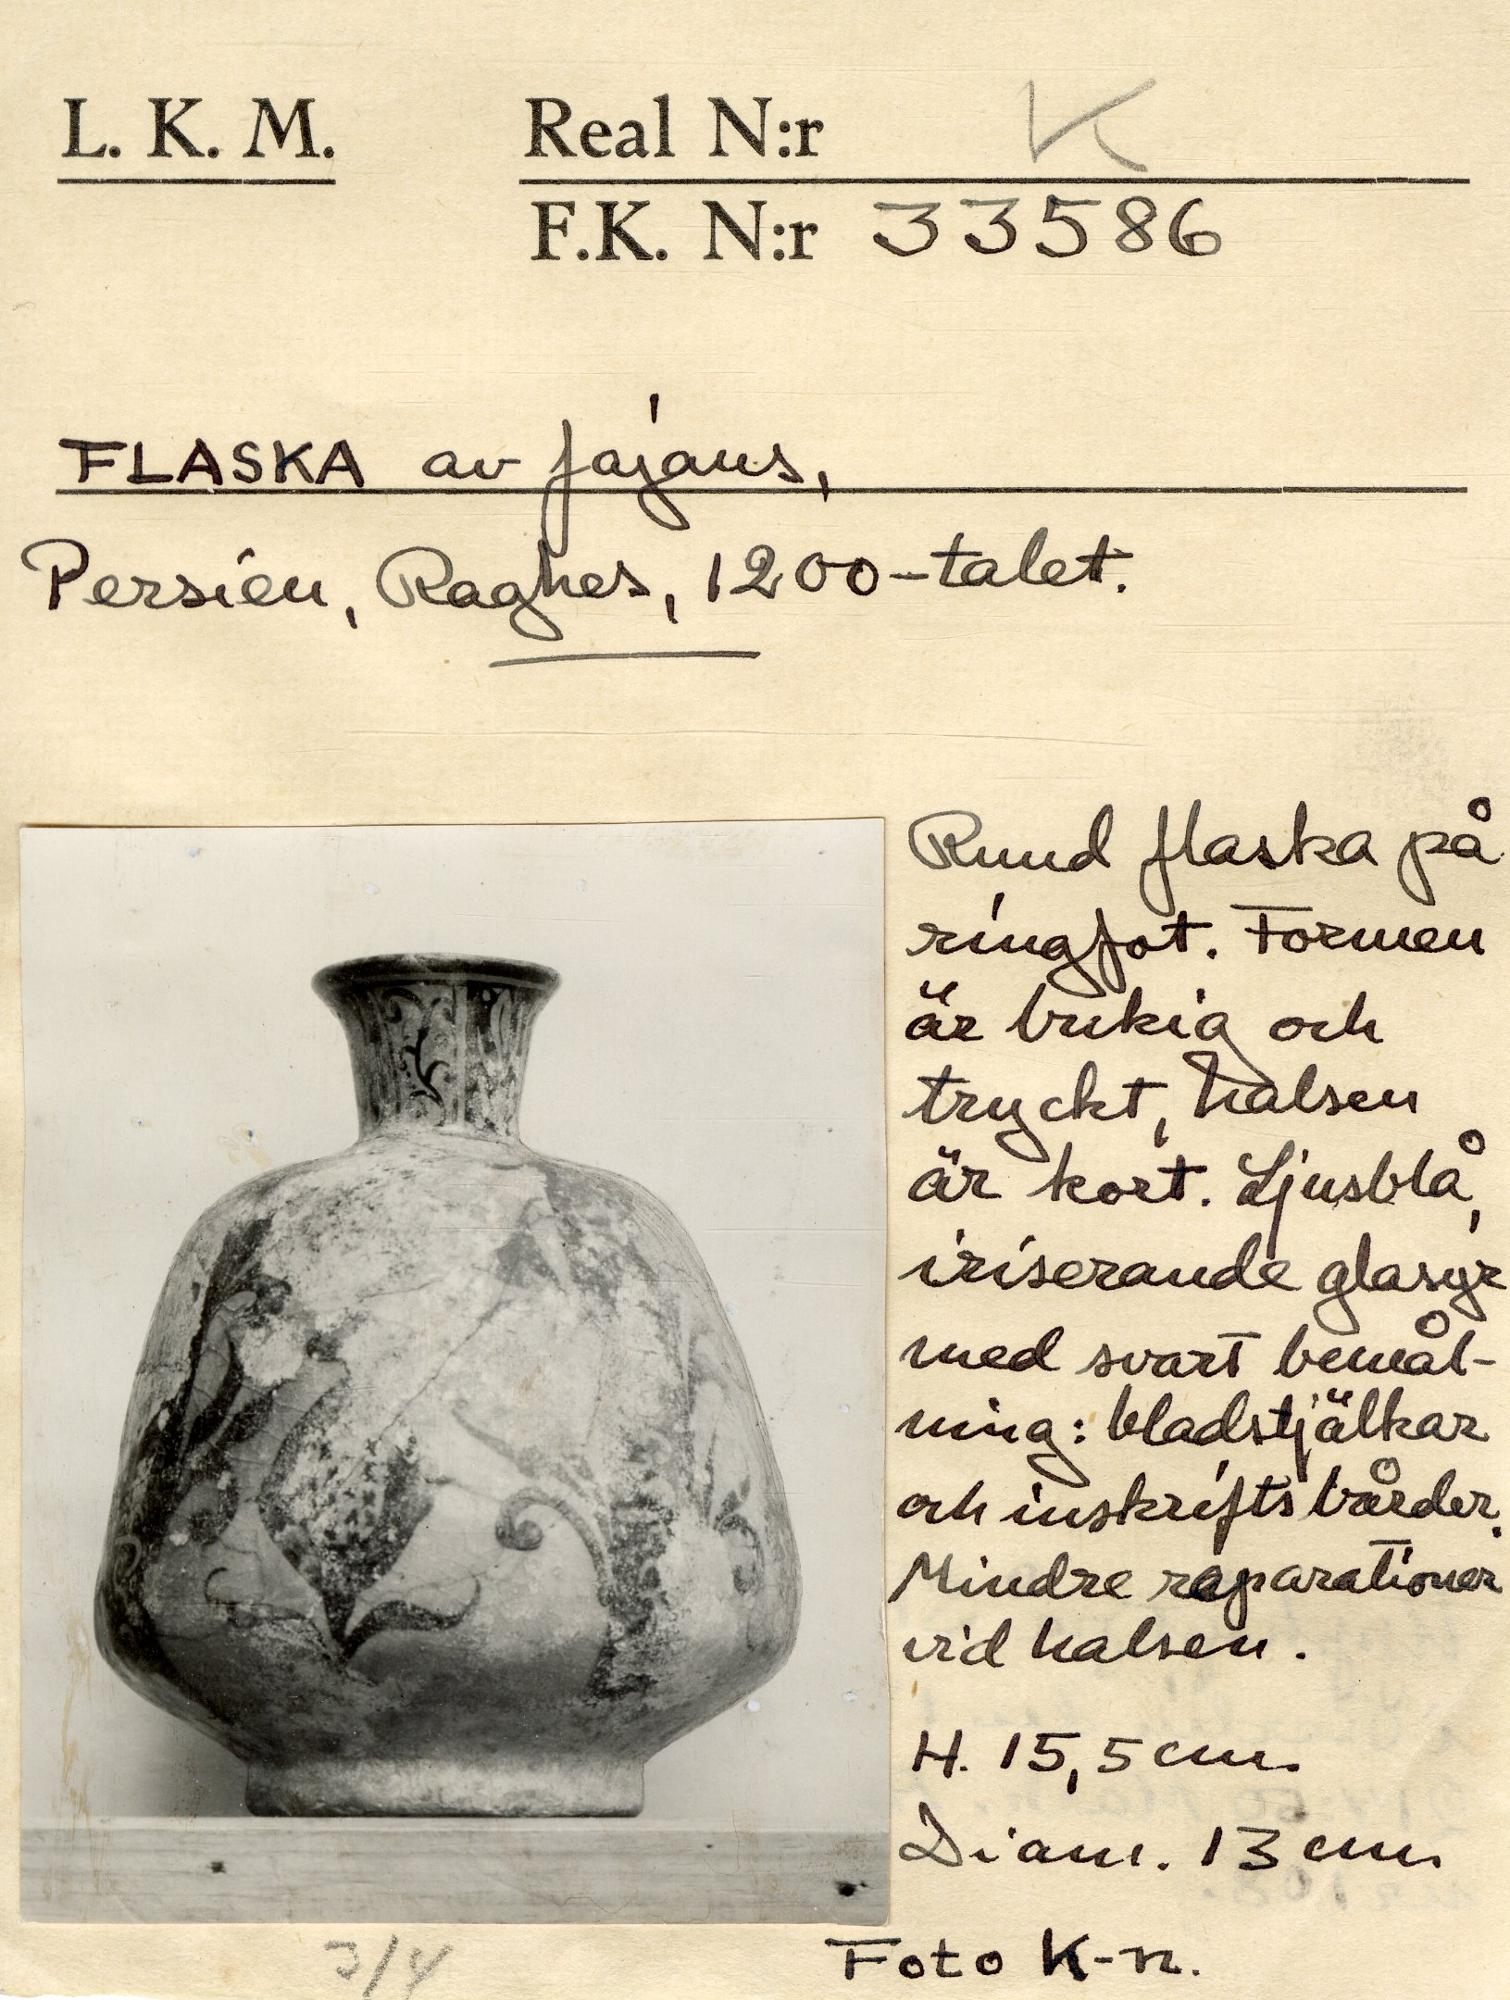 L. K. M.
Real N:r K
F.K. N:r 33586
FLASKA av fajans,
Persien, Raghes, 1200-talet.
Rund flaska på
ringfot. Formen
är bukig och
tryckt, halsen
är kort. Ljusblå,
iriserande glasyr
med svart bemål-
ning: bladstjälkar
och inskriftsbårder.
Mindre raparationer
vid halsen.
H. 15,5 cm.
Diam. 13 cm.
Foto K-n.
3/4